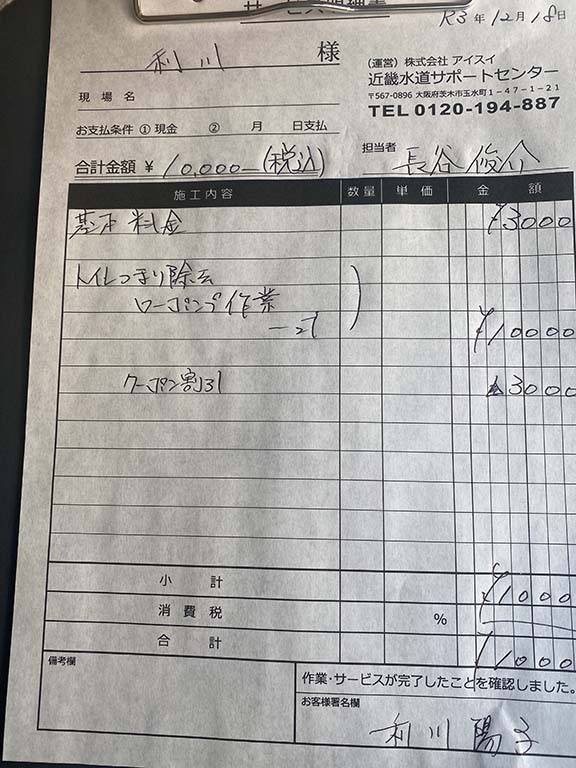 R3年12月18日
利川 様
(運営) 株式会社 アイスイ
近畿水道サポートセンター
〒567-0896 大阪府茨木市玉水町1-47-1-21
TEL 0120-194-887
現場名
お支払条件 ① 現金 ② 月 日支払
担当者 長谷 俊介
合計金額 ¥10,000-(税込)
施工内容 数量 単価 金額
基本料金 ¥3000
トイレつまり除去
ローポンプ作業
一式 ¥10000
クーポン割引 ▲3000
小計 ¥1000
消費税 %
合計 ¥1000
備考欄
作業・サービスが完了したことを確認しました。
お客様署名欄
利川 陽子